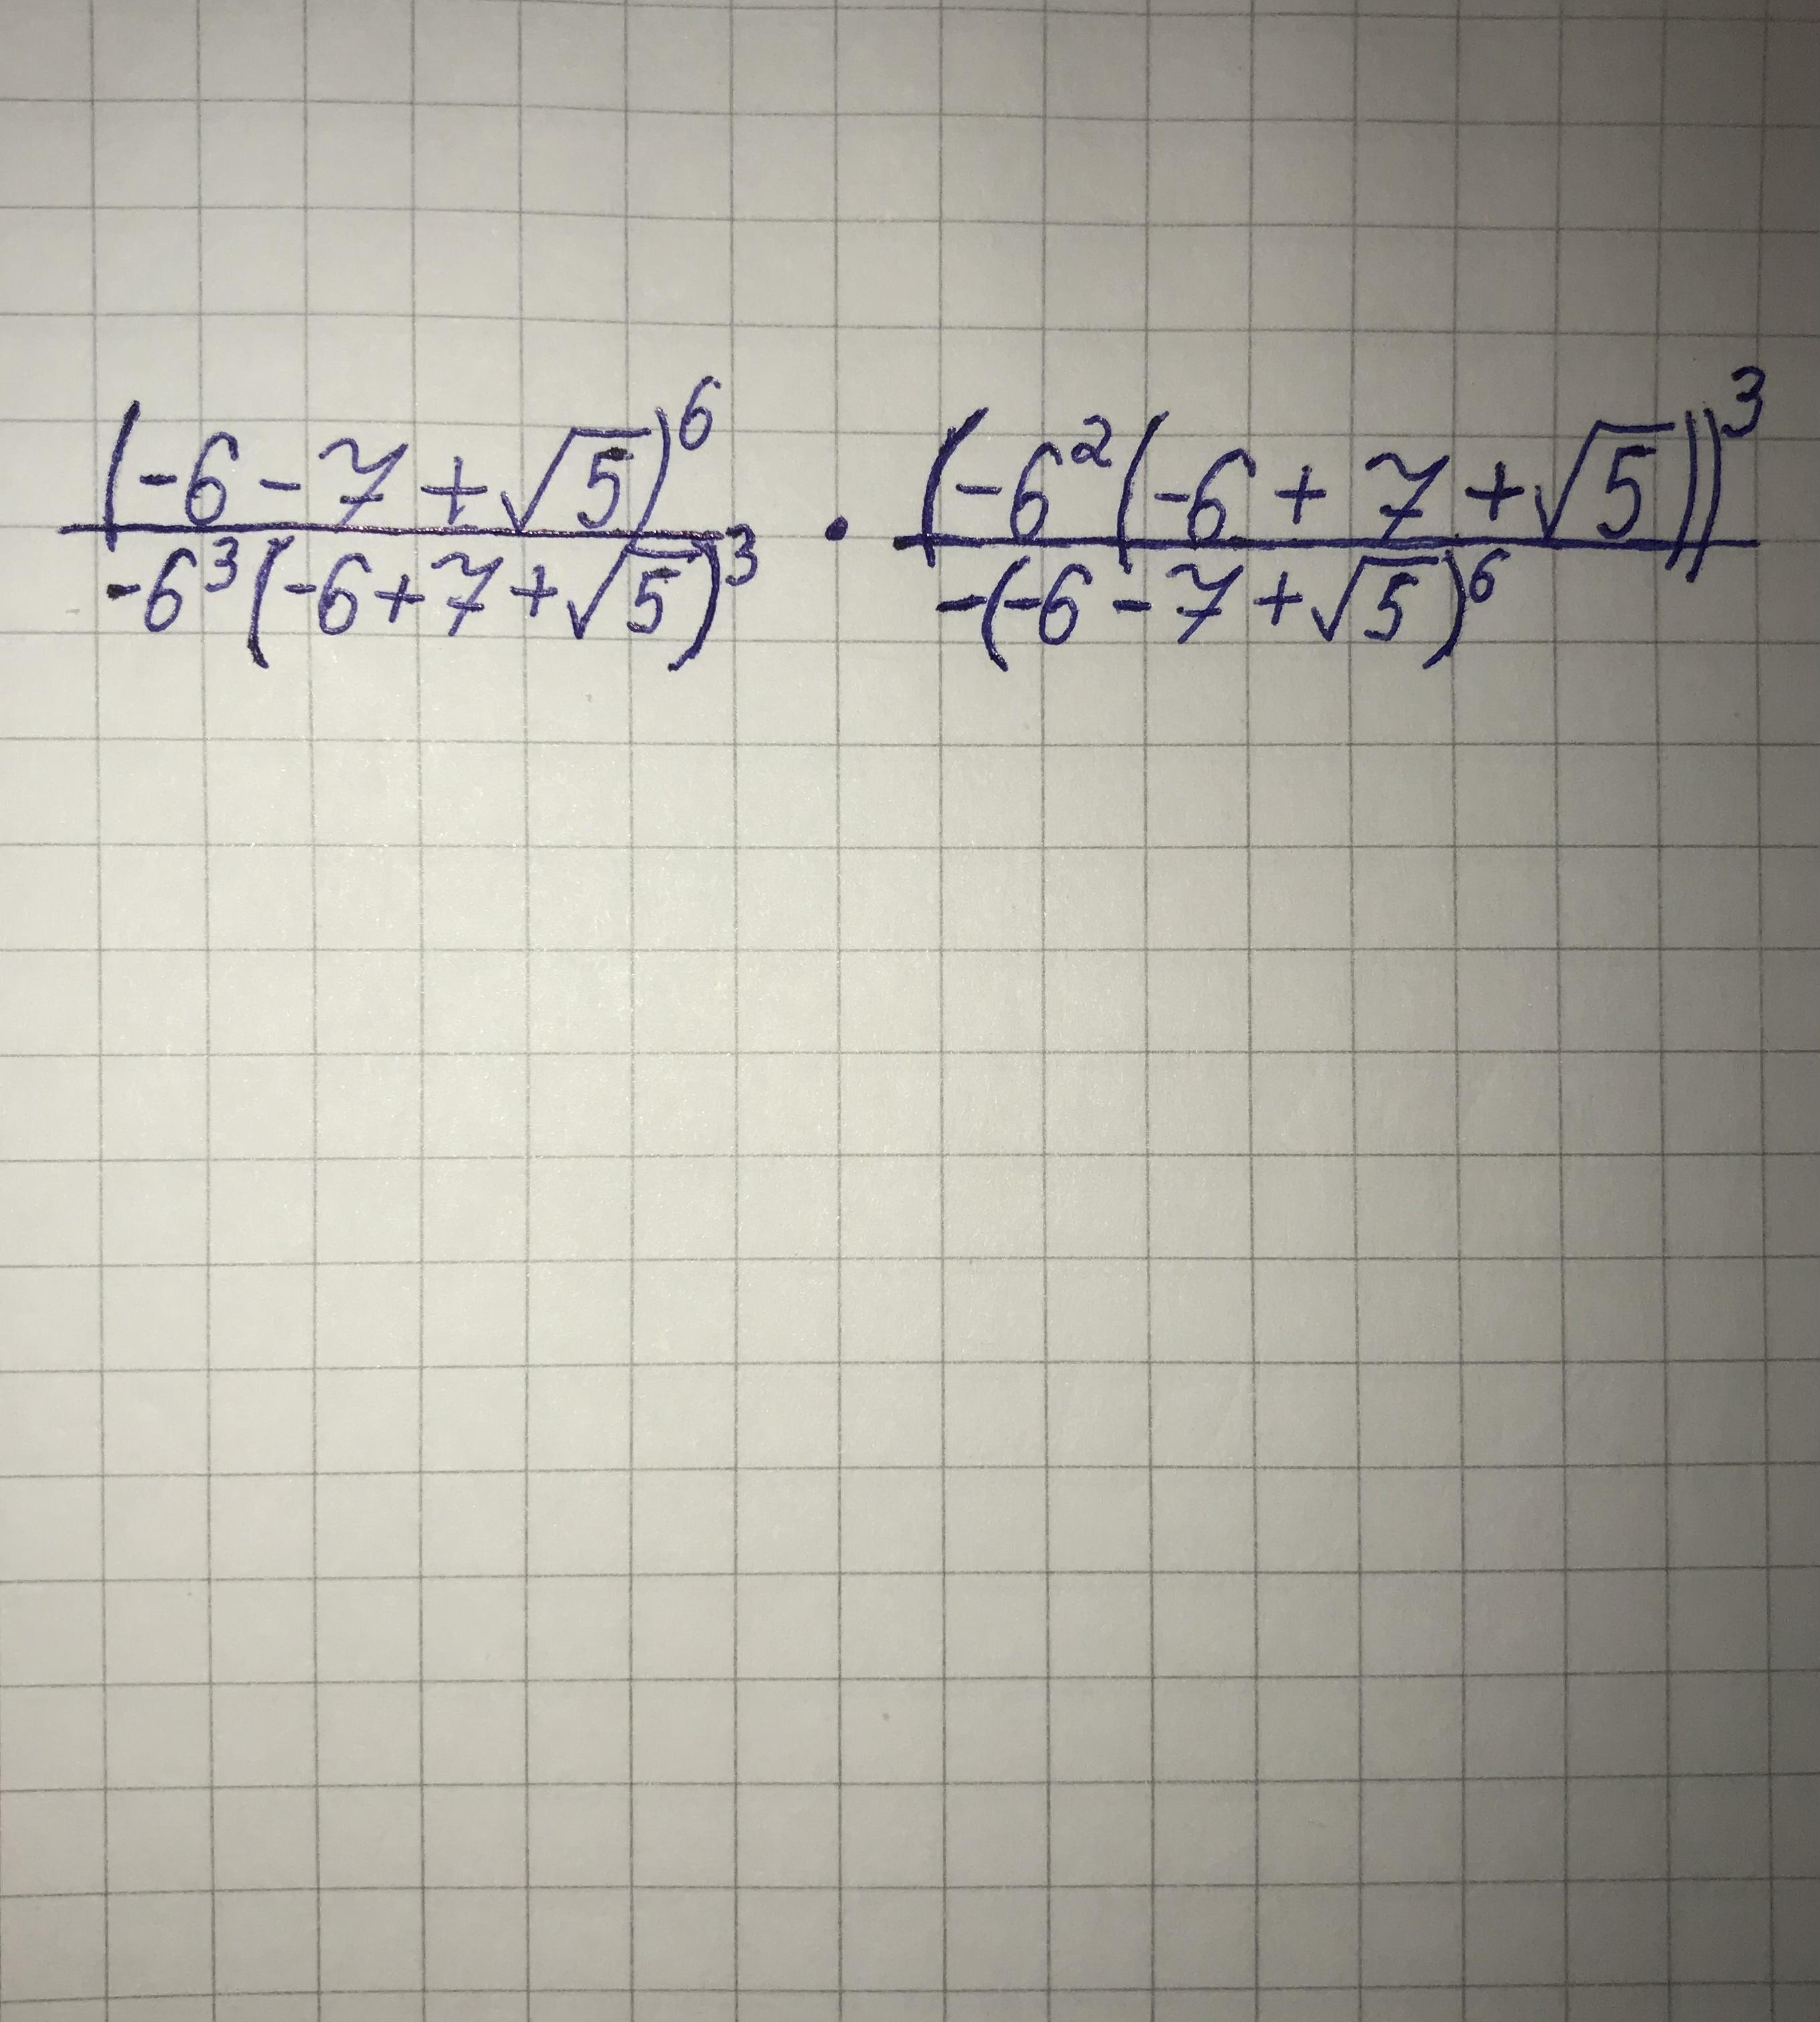 (-6-7+√5)⁶ / -6³(-6+7+√5)³ · (-6²(-6+7+√5))³ / -(-6-7+√5)⁶